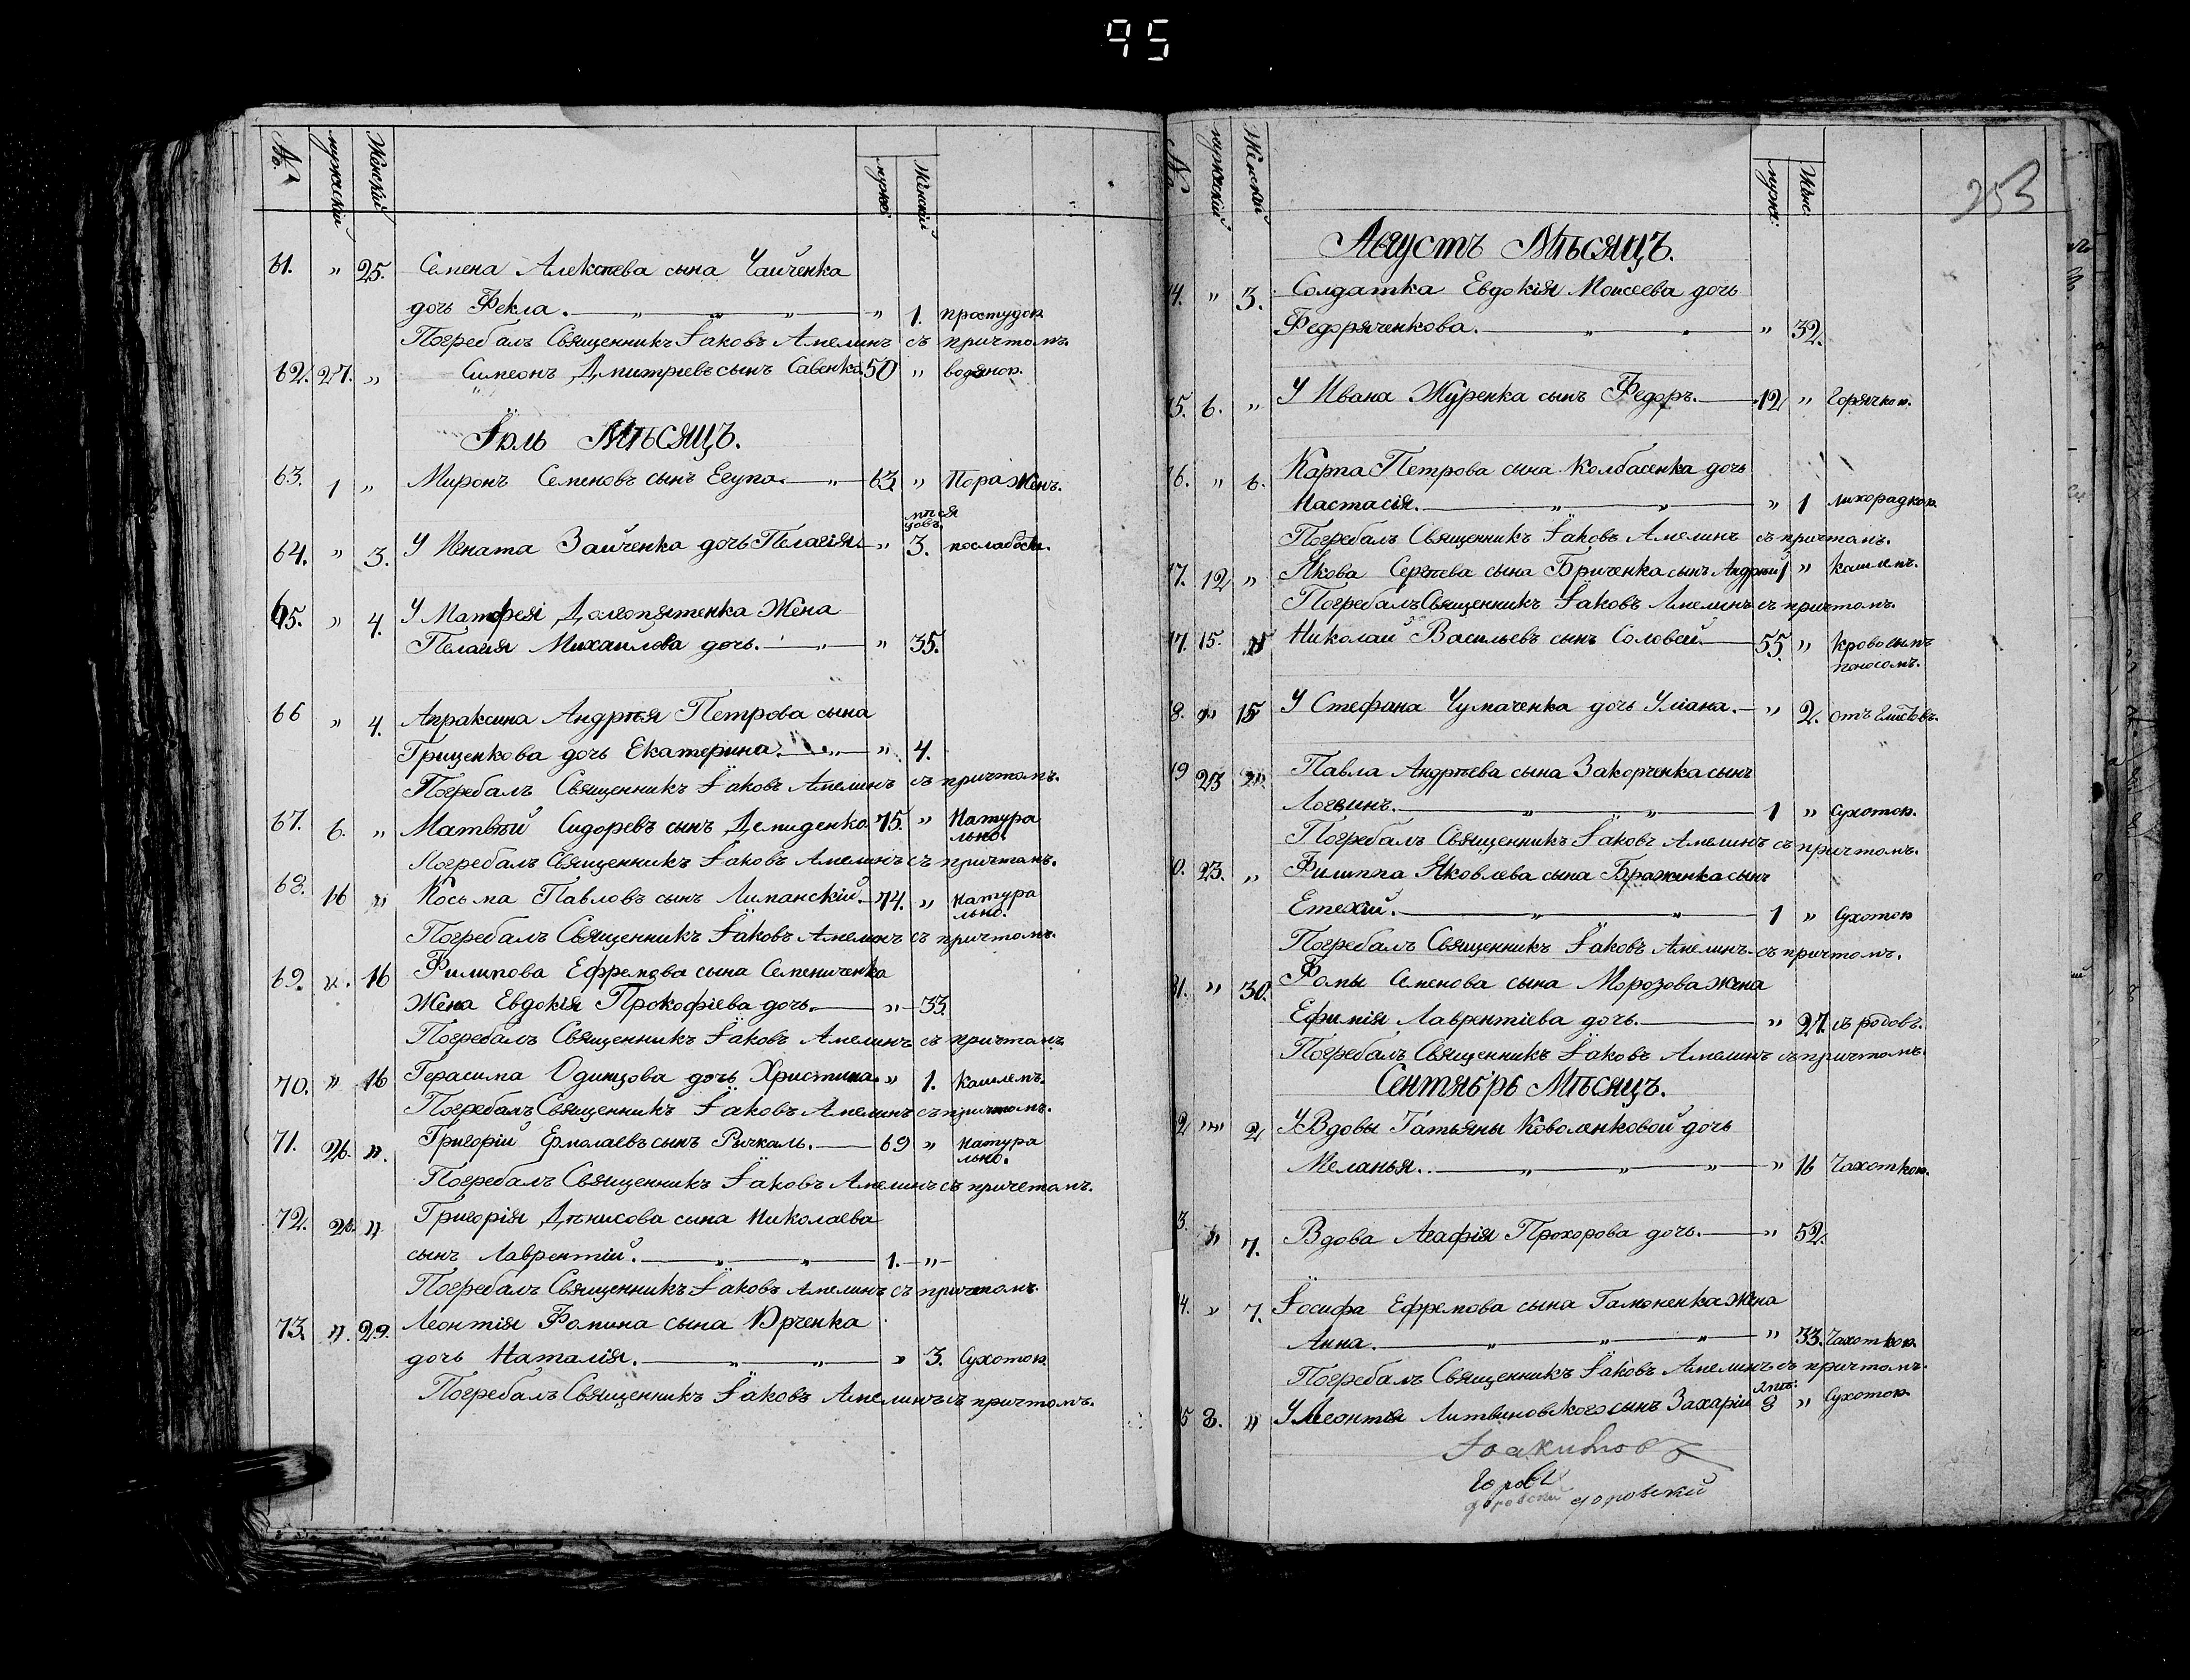 95
№. мужескій Женскій мужес: Женскій
61. " 25. Семена Алексѣева сына Чайченка
дочь Фекла. " 1. простудою.
Погребалъ Священникъ Іаковъ Амелинъ съ причтомъ.
62. 27. " Симеонъ Дмитріевъ сынъ Савенко. 50 " водяною.
Іюль Мѣсяцъ.
63. 1 " Миронъ Семеновъ сынъ Егупа. 63. " Пораженъ.
64. " 3. У Игната Зайченка дочь Пелагія. " мѣсяцовъ. 3. послабости.
65. " 4. У Матфея Долгопятенка Жена
Пелагея Михайлова дочь. " 35.
66 " 4. Апраксина Андрѣя Петрова сына
Гриценкова дочь Екатерина. " 4.
Погребалъ Священникъ Іаковъ Амелинъ съ причтомъ.
67. 6. " Матвѣй Сидоревъ сынъ Демиденко. 75. " Натура
льно.
Погребалъ Священникъ Іаковъ Амелинъ съ причтомъ.
68. 16 " Косьма Павловъ сынъ Липанскій. 74. " натура
льно.
Погребалъ Священникъ Іаковъ Амелинъ съ причтомъ.
69. ". 16 Филипова Ефремова сына Семениченка
Жена Евдокія Прокофіева дочь. " 33.
Погребалъ Священникъ Іаковъ Амелинъ съ причтомъ
70. " 16 Герасима Одинцова дочь Христина. " 1. кашлемъ.
Погребалъ Священникъ Іаковъ Амелинъ съ причтомъ.
71. 26. ". Григорій Ермолаевъ сынъ Ричкаль. 69 " натура
льно.
Погребалъ Священникъ Іаковъ Амелинъ съ причетомъ.
72. 26. " Григорія Дѣнисова сына Николаева
сынъ Лаврентій. 1. "
Погребалъ Священникъ Іаковъ Амелинъ съ причтомъ.
73. ". 29. Леонтія Фомина сына Юрченка
дочь Наталія. " 3. Сухотою.
Погребалъ Священникъ Іаковъ Амелинъ съ причтомъ.
№ мужескій Женскій мужес: Женс: 253
Августъ Мѣсяцъ.
14. " 3. Солдатка Евдокія Моисеева дочь
Федоряченкова. " 32.
15. 6. " У Ивана Журенка сынъ Федоръ. 12 " Горячкою.
16. " 6. Карпа Петрова сына Колбасенка дочь
Настасія. " 1 лихорадкою.
Погребалъ Священникъ Іаковъ Амелинъ съ причтомъ.
17. 12 " Якова Сергѣева сына Бриченка сынъ Андрѣй 1 " кашлемъ.
Погребалъ Священникъ Іаковъ Амелинъ съ причтомъ.
17. 15. " Николай Васильевъ сынъ Соловей. 55. " кровосымъ
поносомъ.
18. " 15 У Стефана Чумаченка дочь Уліана. " 2. отъ глистовъ.
19 23 " Павла Андрѣева сына Закорченка сынъ
Логвинъ. 1 " Сухотою.
Погребалъ Священникъ Іаковъ Амелинъ съ причтомъ.
0. 23. " Филиппа Яковлева сына Бражинка сынъ
Етехій. 1 " Сухотою
Погребалъ Священникъ Іаковъ Амелинъ съ причтомъ.
81. " 30. Фомы Семенова сына Морозова жена
Ефимія Лаврентіева дочь. " 27. съ родовъ.
Погребалъ Священникъ Іаковъ Амелинъ съ причтомъ.
Сентябрь Мѣсяцъ.
2 " 2 У Вдовы Татьяны Коваленковой дочь
Меланья. " 16 Чахоткою.
3. " 7. Вдова Агафія Прохорова дочь. " 52.
4. " 7. Іосифа Ефремова сына Гамоненка жена
Анна. " 33. Чахоткою.
Погребалъ Священникъ Іаковъ Амелинъ съ причтомъ.
5 8. " У Леонтія Литвиновского сынъ Захарій лѣтъ: 8 " Сухотою.